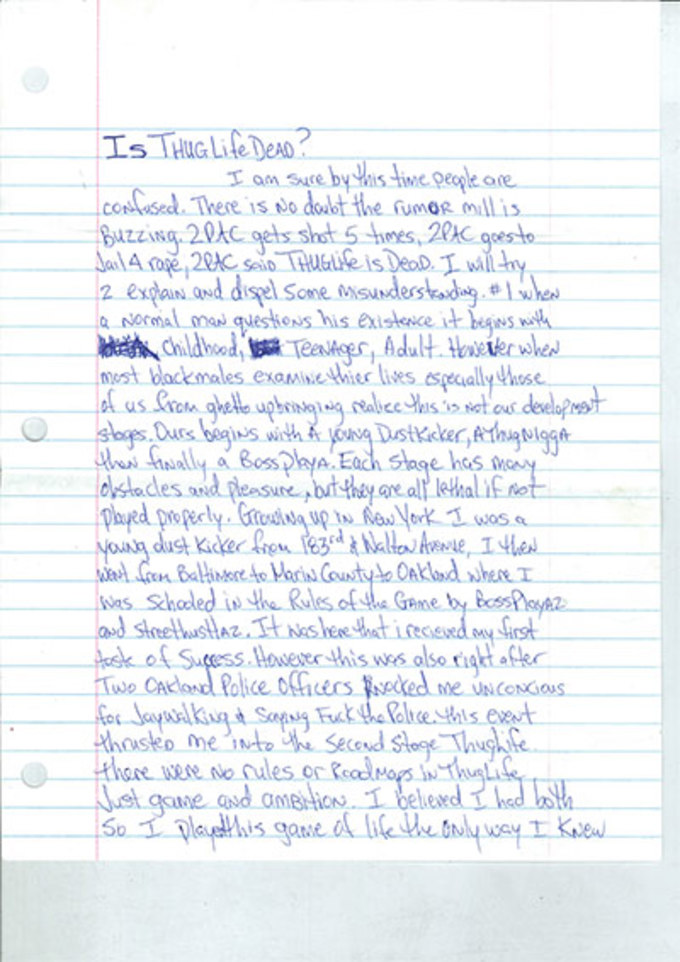 Is THUG Life DEAD?
I am sure by this time people are
confused. There is no doubt the rumor mill is
Buzzing. 2PAC gets shot 5 times, 2PAC goes to
Jail 4 rape, 2PAC said THUGLife is DeaD. I will try
2 explain and dispel some misunderstanding. #1 when
a normal man questions his existence it begins with
Childhood, Teenager, Adult. However when
most blackmales examine thier lives especially those
of us from ghetto upbringing realize this is not our development
stages. Ours begins with A young DustKicker, A Thug NIggA
then finally a Boss PlayA. Each stage has many
obstacles and pleasure, but they are all lethal if not
played properly. Growing up in New York I was a
young dust kicker from 183rd & Walton Avenue, I then
went from Baltimore to Marin County to OAkland where I
was schooled in the Rules of the Game by BossPlayAz
and streethustlaz. It was here that i recieved my first
taste of Success. However this was also right after
Two OAkland Police Officers knocked me unconcious
for Jaywalking & Saying Fuck the Police. this event
thrusted me into the Second Stage Thuglife.
there were no rules or RoadMaps in ThugLife
Just game and ambition. I believed I had both
So I played this game of life the only way I knew